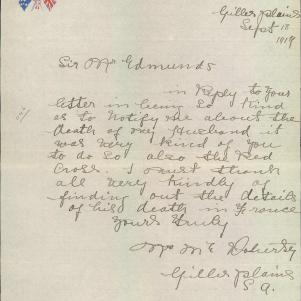 Gilles plains
Sept 18
1919
Sir Mr Edmunds
in Reply to your
letter in being so kind
as to notify me about the
death of my Husband it
was very kind of you
to do so also the Red
Cross. I must thank
all very kindly of
finding out the details
of his death in France
Yours Truly
Mrs M E Doherty
Gilles plains
S A.